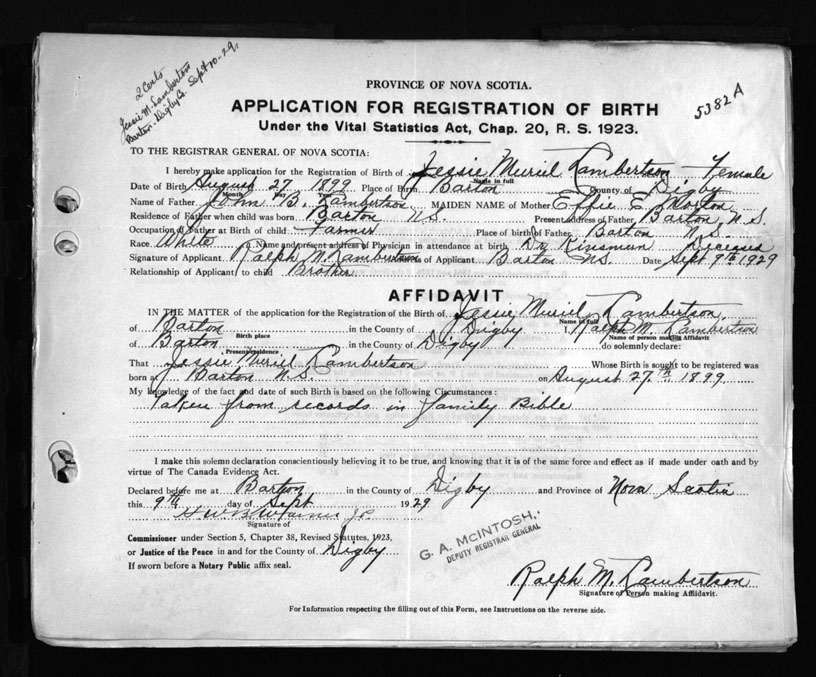 2 Cents
Jessie M. Lambertson
Barton, Digby Co. Sept 10-29
5382 A
PROVINCE OF NOVA SCOTIA.
APPLICATION FOR REGISTRATION OF BIRTH
Under the Vital Statistics Act, Chap. 20, R. S. 1923.
TO THE REGISTRAR GENERAL OF NOVA SCOTIA:
I hereby make application for the Registration of Birth of Jessie Muriel Lambertson Female
Name in full
Date of Birth August 27 1899 Place of Birth Barton County of Digby
Name of Father John B. Lambertson MAIDEN NAME of Mother Effie E. Morton
Residence of Father when child was born Barton N.S. Present address of Father Barton N.S.
Occupation of Father at Birth of child Farmer Place of birth of Father Barton N.S.
Race White Name and present address of Physician in attendance at birth Dr Kinsmun
Signature of Applicant Ralph M. Lambertson of Applicant Barton NS. Date Sept 9th 1929
Relationship of Applicant to child Brother
AFFIDAVIT
IN THE MATTER of the application for the Registration of the Birth of Jessie Muriel Lambertson.
Name in full
of Barton in the County of Digby I, Ralph M. Lambertson
Birth place Name of person making Affidavit
of Barton in the County of Digby do solemnly declare:
Present residence
That Jessie Muriel Lambertson Whose Birth is sought to be registered was
born at Barton N.S. on August 27th 1899.
My knowledge of the fact and date of such Birth is based on the following Circumstances:
Taken from records in family Bible
I make this solemn declaration conscientiously believing it to be true, and knowing that it is of the same force and effect as if made under oath and by
virtue of The Canada Evidence Act.
Declared before me at Barton in the County of Digby and Province of Nova Scotia
this 9th day of Sept 1929
Signature of
Commissioner under Section 5, Chapter 38, Revised Statutes, 1923,
or Justice of the Peace in and for the County of Digby
If sworn before a Notary Public affix seal.
G. A. McINTOSH,
DEPUTY REGISTRAR GENERAL
Ralph M. Lambertson
Signature of Person making Affidavit.
For Information respecting the filling out of this Form, see Instructions on the reverse side.